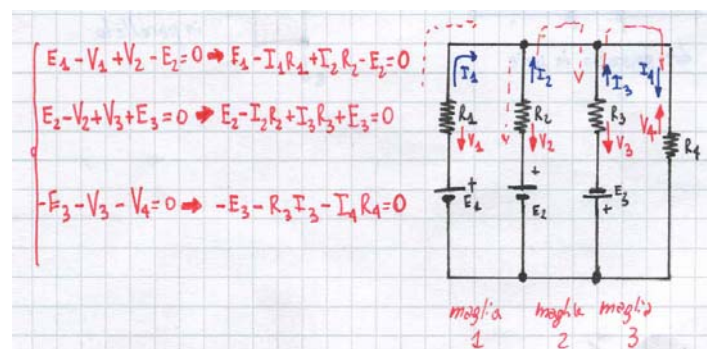 E1 - V1 + V2 - E2 = 0 ➡ E1 - I1R1 + I2R2 - E2 = 0
E2 - V2 + V3 + E3 = 0 ➡ E2 - I2R2 + I3R3 + E3 = 0
-E3 - V3 - V4 = 0 ➡ -E3 - R3I3 - I4R4 = 0
I1 I2 I3 I4
R1 R2 R3 V4
V1 V2 V3 R4
+ +
E1 E2 E3
+
maglia maglia maglia
1 2 3